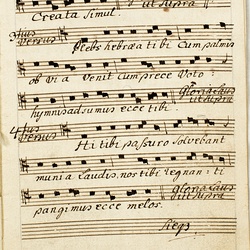 ut supra
Creata simul.
3tius
Versus
Plebs hebræa tibi Cum palmis
ob via Venit Cum prece Voto
Gloria laus
ut supra
hymnis adsumus ecce tibi.
4tus
Versus
Hi tibi passuro solvebant
munia Laudis, nos tibi regnan: ti
Gloria laus
ut supra
pangimus ecce melos.